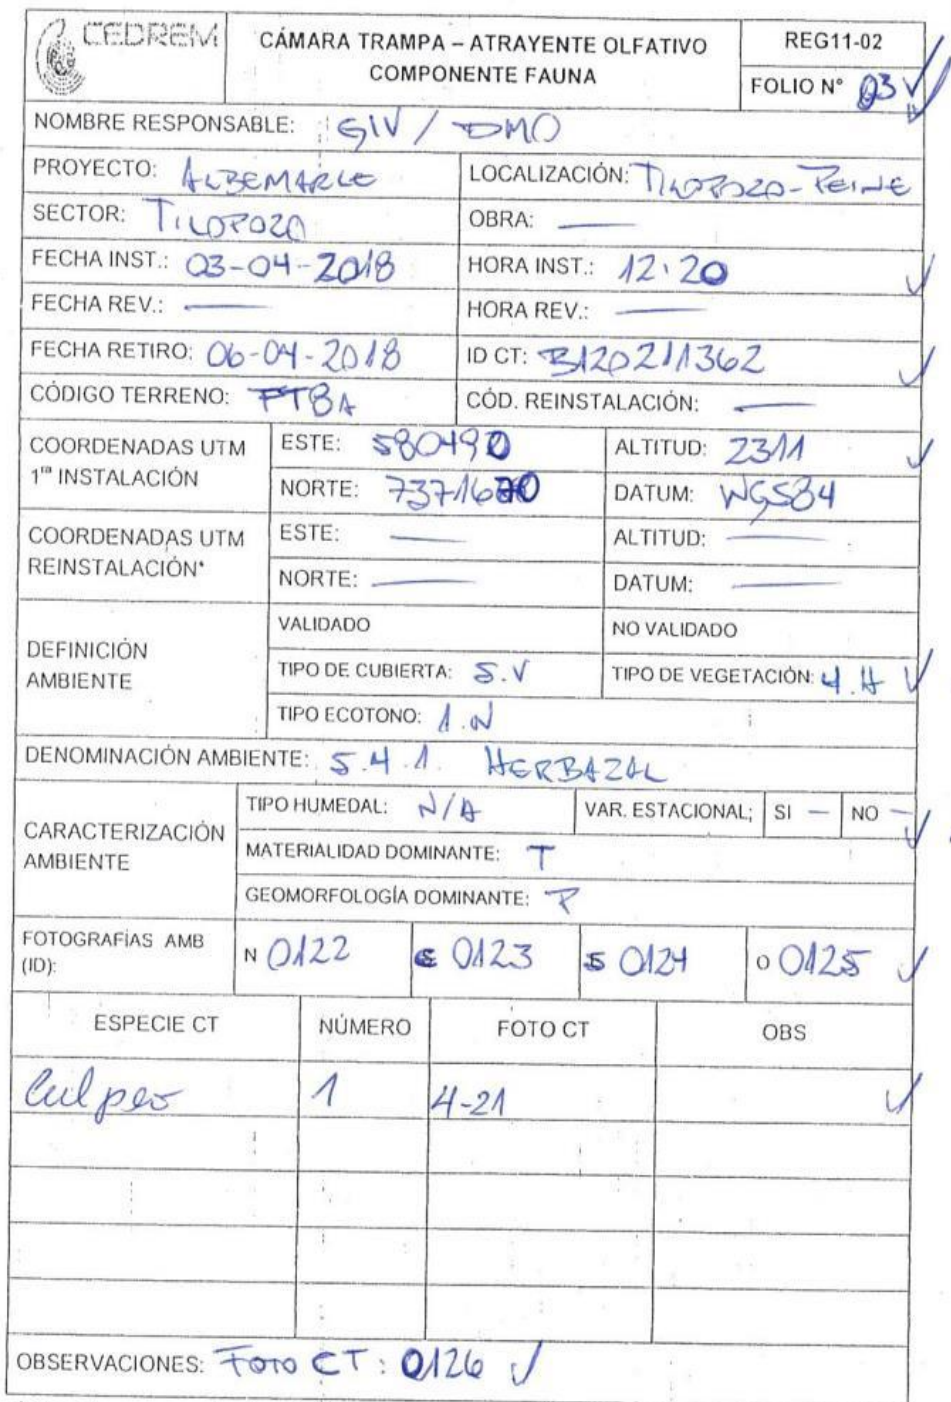 CEDREM
CÁMARA TRAMPA – ATRAYENTE OLFATIVO
COMPONENTE FAUNA
REG11-02
FOLIO N° 03
NOMBRE RESPONSABLE: GIV / DMO
PROYECTO: ALBEMARLE
LOCALIZACIÓN: TILOPOZO-PEINE
SECTOR: TILOPOZO
OBRA: —
FECHA INST.: 03-04-2018
HORA INST.: 12:20
FECHA REV.: —
HORA REV.: —
FECHA RETIRO: 06-04-2018
ID CT: B120211362
CÓDIGO TERRENO: FT8A
CÓD. REINSTALACIÓN: —
COORDENADAS UTM
1ra INSTALACIÓN
ESTE: 580490
ALTITUD: 2311
NORTE:
DATUM: WGS84
COORDENADAS UTM
REINSTALACIÓN*
ESTE: —
ALTITUD: —
NORTE: —
DATUM: —
DEFINICIÓN
AMBIENTE
VALIDADO
NO VALIDADO
TIPO DE CUBIERTA: 5.V
TIPO DE VEGETACIÓN: 4.H
TIPO ECOTONO: 1.N
DENOMINACIÓN AMBIENTE: 5.4.1. HERBAZAL
CARACTERIZACIÓN
AMBIENTE
TIPO HUMEDAL: N/A
VAR. ESTACIONAL; SI — NO —
MATERIALIDAD DOMINANTE: T
GEOMORFOLOGÍA DOMINANTE: P
FOTOGRAFÍAS AMB
(ID):
N 0122
E 0123
S 0124
O 0125
ESPECIE CT
NÚMERO
FOTO CT
OBS
Culpeo
1
4-21
OBSERVACIONES: FOTO CT: 0126